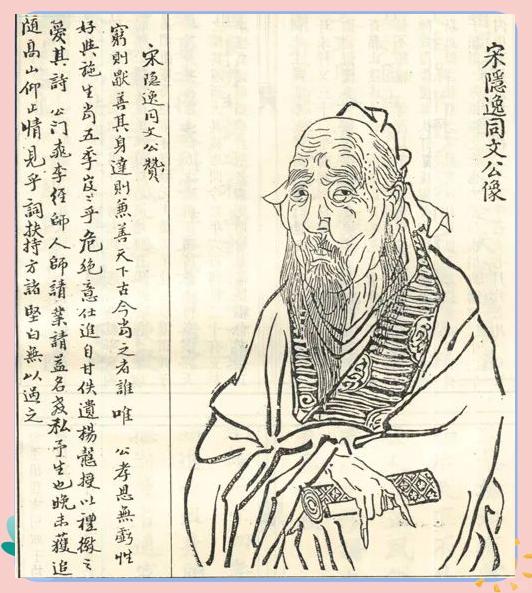 宋隱逸同文公像
宋隱逸同文公贊
窮則獨善其身達則兼善天下古今當之者誰唯 公孝思無虧性
好與施生當五季岌〻乎危絕意仕進自甘佚遺楊愨授以禮徵之
愛其詩 公門桃李經師人師請業請益名教私予生也晚未獲追
隨高山仰止情見乎詞扶持方諸堅白無以過之